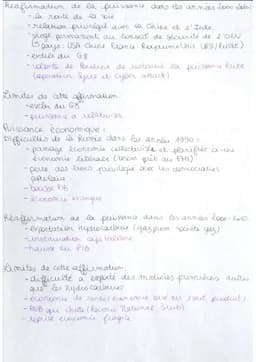 Réaffirmation de la puissance dans les années 2000-2010
- la route de la soie
- relation privilégié avec la Chine et l'Inde.
- siège permanent au conseil de sécurité de l'ONU
(5 pays: USA Chine France Royaume-Uni URSS/Russie)
- entrée du G8
- volonté de Poutine de restaurer la puissance Russe
(opération Syrie et cyber attack)
Limites de cette affirmation.
- exclu du G8
- puissance à relativiser
Puissance économique:
Difficultés de la Russie dans les années 1990:
- passage économie collectiviste et planifiée à une
économie libérale (FMI)
- perte des liens privilégié avec les démocraties
populaire
- baisse PIB
- économie
Réaffirmation de la puissance dans les années 2000-2010
- exportation hydrocarbure (gaz)
- hausse du PIB
Limites de cette affirmation.
- difficulté à exporté des matières premières autre
que les hydrocarbures
- économie de rente (économie sur un seul produit)
- PNB qui chute (Produit National Brut)
- reprise économie fragile